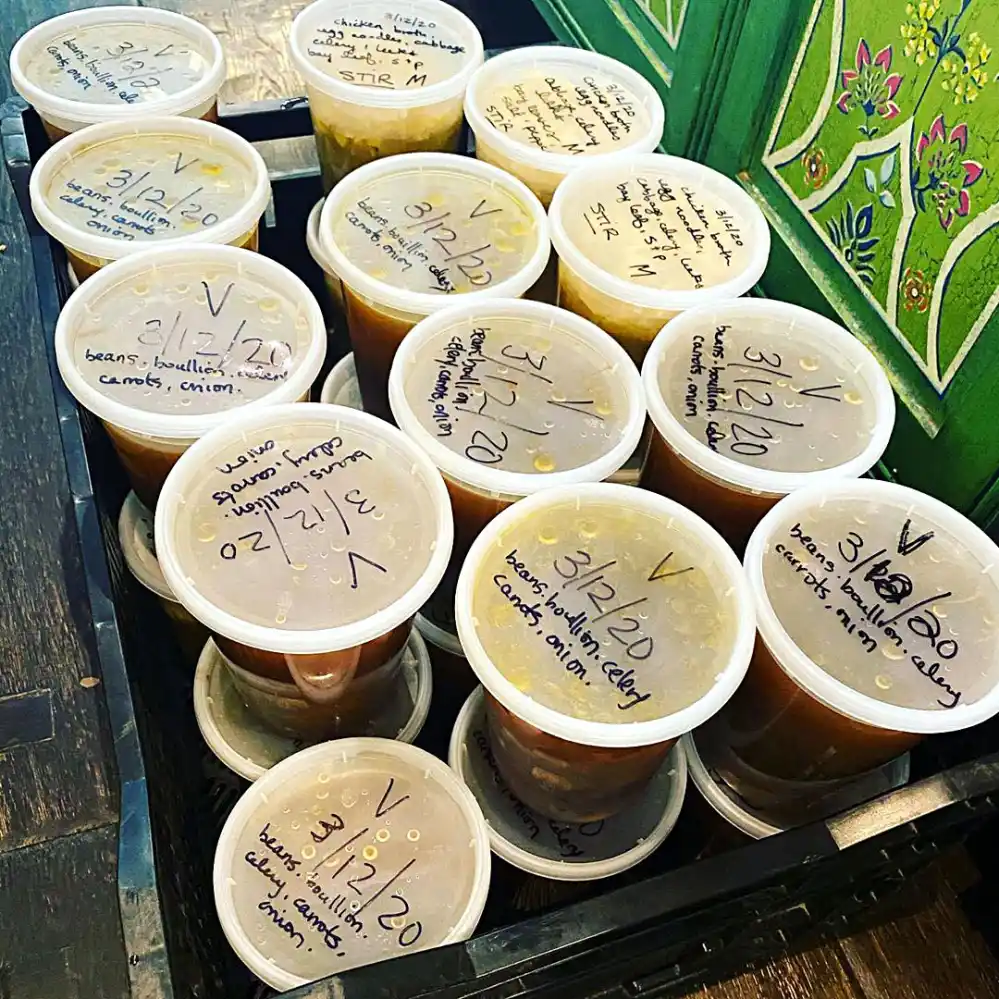 V
3/12/2
beans, boullion, cel
carrots, onion
3/12/20
chicken broth,
egg noodles, cabbage
celery, leeks
bay leaf, s+p
STIR M
3/12/20
chicken broth
egg noodles
celery
STIR
M
V
3/12/20
beans, boullion,
celery, carrots
onion
V
3/12/20
beans, boullion, celery
carrots, onion
3/12/20
chicken broth
egg noodles,
cabbage, celery, leeks
bay leaf, s+p
STIR
M
V
3/12/20
beans. boullion. celery
carrots, onion.
V
3/12/20
beans, boullion
celery, carrots, onion
V
3/12/20
beans. boullion. celery
carrots, onion
V
3/12/20
beans. boullion.
celery, carrots.
onion
V
3/12/20
beans. boullion. celery
carrots, onion.
V
3/12/20
beans. boullion. celery
carrots, onion
V
3/12/20
beans. boullion.
celery, carrots,
onion.